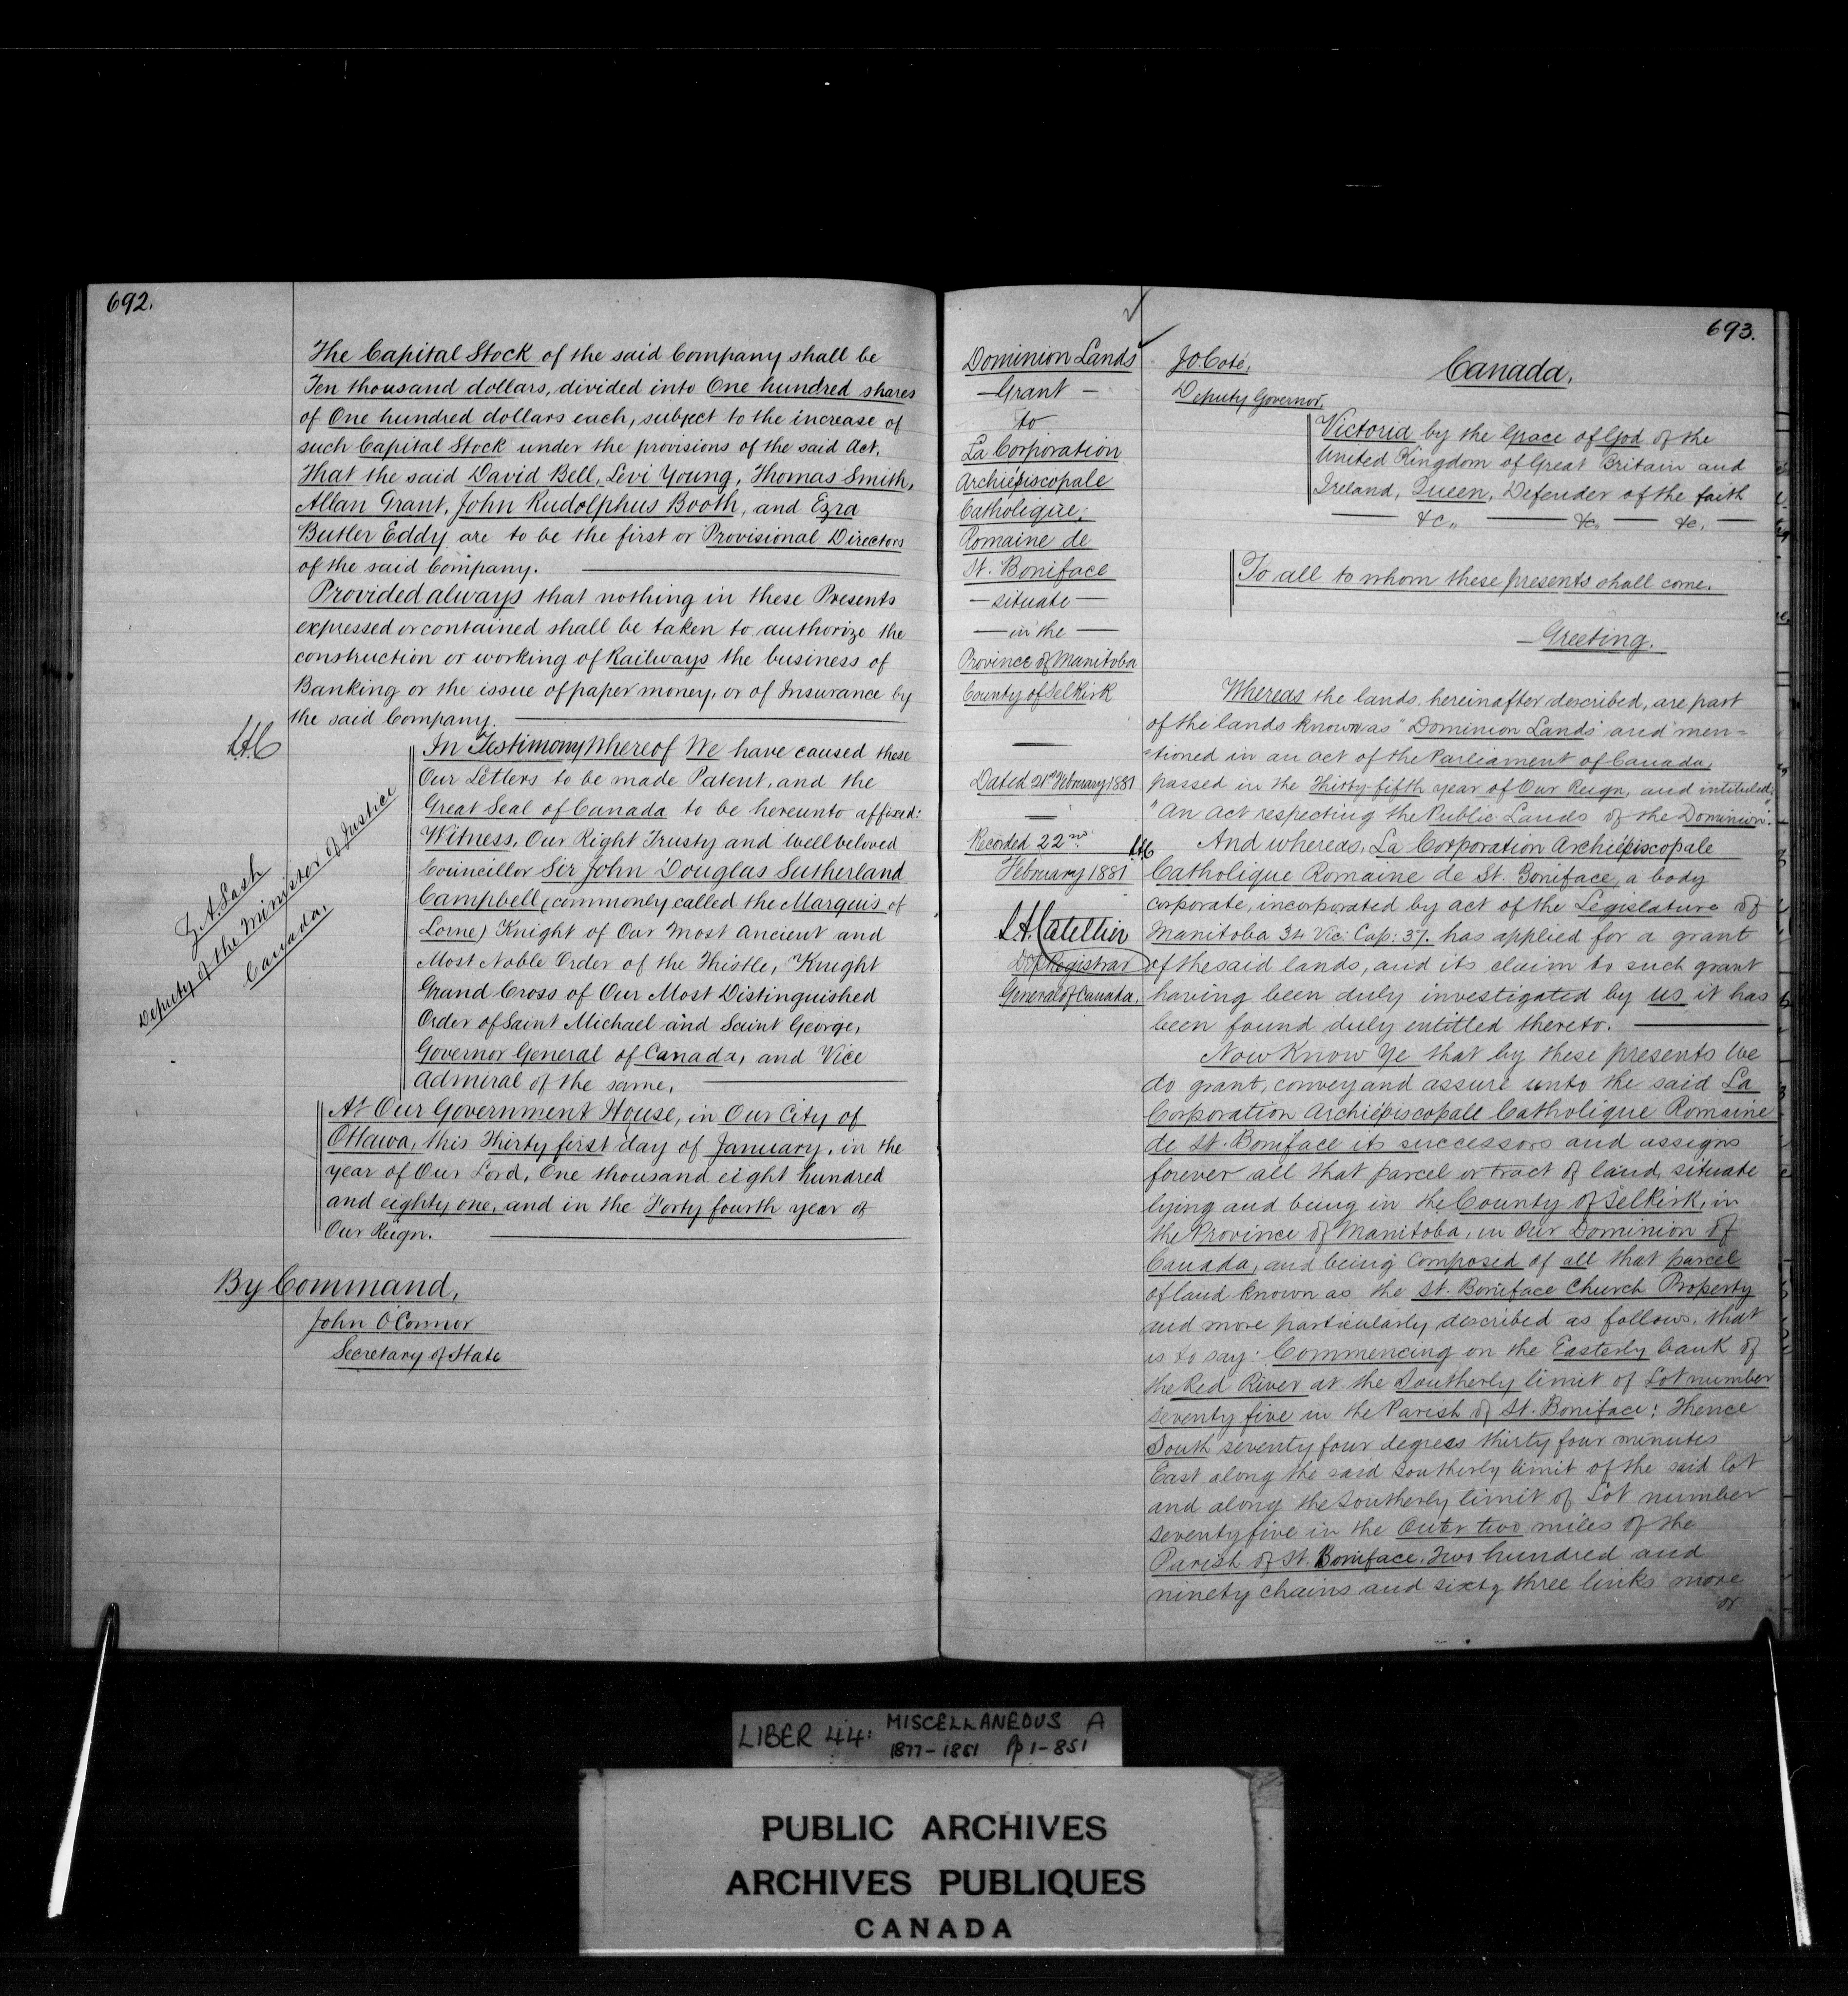 692.
The Capital Stock of the said Company shall be
Ten thousand dollars, divided into One hundred shares
of One hundred dollars each, subject to the increase of
such Capital Stock under the provisions of the said Act.
That the said David Bell, Levi Young, Thomas Smith,
Allan Grant, John Rudolphus Booth, and Ezra
Butler Eddy are to be the first or Provisional Directors
of the said Company.
Provided always that nothing in these Presents
expressed or contained shall be taken to authorize the
construction or working of Railways the business of
Banking or the issue of paper money, or of Insurance by
the said Company.
In Testimony Whereof We have caused these
Our Letters to be made Patent, and the
Great Seal of Canada to be hereunto affixed:
Witness, Our Right Trusty and Well beloved
Councillor Sir John Douglas Sutherland
Campbell, (commonly called the Marquis of
Lorne) Knight of Our Most Ancient and
Most Noble Order of the Thistle, Knight
Grand Cross of Our Most Distinguished
Order of Saint Michael and Saint George,
Governor General of Canada, and Vice
Admiral of the same,
At Our Government House, in Our City of
Ottawa, this Thirty first day of January, in the
year of Our Lord, One thousand eight hundred
and eighty one, and in the Forty fourth year of
Our Reign.
Z. A. Lash
Deputy of the Minister of Justice
Canada,
By Command,
John O'Connor
Secretary of State
693.
Dominion Lands
Grant
to
La Corporation
Archiépiscopale
Catholique,
Romaine de
St. Boniface
situate
in the
Province of Manitoba
County of Selkirk
Dated 21st February 1881
Recorded 22nd
February 1881
L.A. Catellier
Dep Registrar
General of Canada,
J.O. Coté,
Deputy Governor,
Canada,
Victoria by the Grace of God of the
United Kingdom of Great Britain and
Ireland, Queen, Defender of the faith
&c., &c, &c,
To all to whom these presents shall come.
Greeting.
Whereas the lands hereinafter described, are part
of the lands known as "Dominion Lands" and men=
=tioned in an act of the Parliament of Canada,
passed in the Thirty-fifth year of Our Reign, and intituled,
"An Act respecting the Public Lands of the Dominion".
And whereas, La Corporation Archiépiscopale
Catholique Romaine de St. Boniface, a body
corporate, incorporated by act of the Legislature of
Manitoba 34 Vic: Cap: 37. has applied for a grant
of the said lands, and its claim to such grant
having been duly investigated by us it has
been found duly entitled thereto.
Now Know Ye that by these presents We
do grant, convey and assure unto the said La
Corporation Archiépiscopale Catholique Romaine
de St. Boniface its successors and assigns
forever all that parcel or tract of land, situate
lying and being in the County of Selkirk, in
the Province of Manitoba, in Our Dominion of
Canada, and being composed of all that parcel
of land known as the St. Boniface Church Property
and more particularly described as follows, that
is to say: Commencing on the Easterly bank of
the Red River at the Southerly limit of Lot number
seventy five in the Parish of St. Boniface: Thence
South seventy four degrees thirty four minutes
East along the said southerly limit of the said lot
and along the Southerly limit of Lot number
seventy five in the Outer two miles of the
Parish of St. Boniface, Two hundred and
ninety chains and sixty three links more
or
LIBER 44: MISCELLANEOUS A
1877-1881 Pp 1-851
PUBLIC ARCHIVES
ARCHIVES PUBLIQUES
CANADA